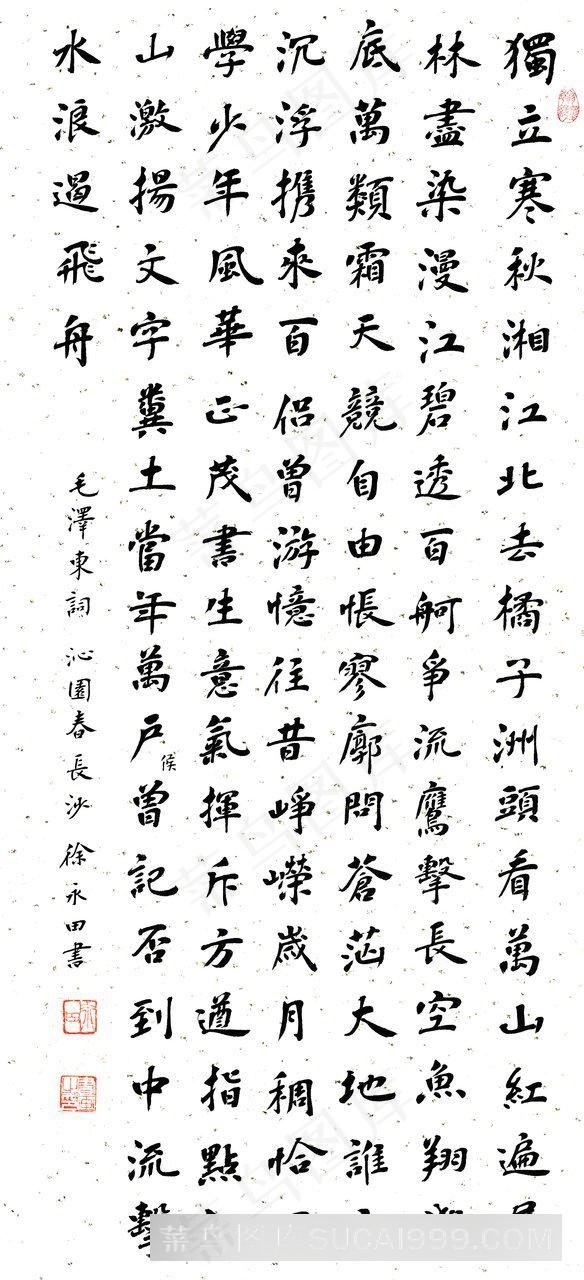 獨立寒秋湘江北去橘子洲頭看萬山紅遍
林盡染漫江碧透百舸爭流鷹擊長空魚翔
底萬類霜天競自由悵寥廓問蒼茫大地誰
沉浮携來百侶曾游憶往昔崢嶸歲月稠恰
學少年風華正茂書生意氣揮斥方遒指點
山激揚文字糞土當年萬戶侯曾記否到中流擊
水浪遏飛舟
毛澤東詞 沁園春長沙 徐永田書
菜鸟图库 SUCAI999.COM